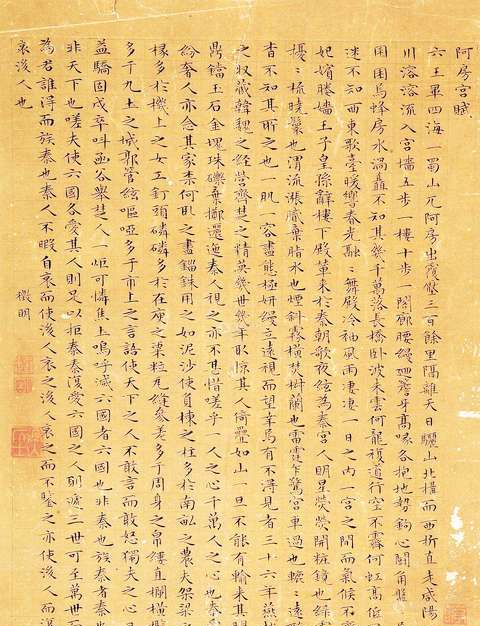 阿房宮賦
六王畢四海一蜀山兀阿房出覆壓三百餘里隔離天日驪山北構而西折直走咸陽
川溶溶流入宮牆五步一樓十步一閣廊腰縵迴簷牙高啄各抱地勢鉤心鬭角盤
囷囷焉蜂房水渦矗不知其幾千萬落長橋臥波未雲何龍複道行空不霽何虹高低
迷不知西東歌臺暖響春光融〻舞殿冷袖風雨凄凄一日之內一宮之間而氣候不
妃嬪媵嬙王子皇孫辭樓下殿輦來於秦朝歌夜絃為秦宮人明星熒熒開粧鏡也綠
擾〻梳曉鬟也渭流漲膩棄脂水也煙斜霧橫焚椒蘭也雷霆乍驚宮車過也轆〻遠
杳不知其所之也一肌一容盡態極妍縵立遠視而望幸焉有不得見者三十六年燕
之收藏韓魏之經營齊楚之精英幾世幾年取掠其人倚疊如山一旦不能有輸來其間
鼎鐺玉石金塊珠礫棄擲邐迤秦人視之亦不甚惜嗟乎一人之心千萬人之心也秦
紛奢人亦念其家柰何取之盡錙銖用之如泥沙使負棟之柱多於南畝之農夫架梁之
椽多於機上之女工釘頭磷磷多於在庾之粟粒瓦縫參差多于周身之帛縷直欄橫檻
多于九土之城郭管絃嘔啞多于市上之言語使天下之人不敢言而敢怒獨夫之心日
益驕固戍卒叫函谷舉楚人一炬可憐焦土嗚呼滅六國者六國也非秦也族秦者秦
非天下也嗟夫使六國各愛其人則足以拒秦秦復愛六國之人則遞三世可至萬世而
為君誰得而族秦也秦人不暇自哀而使後人哀之後人哀之而不鑒之亦使後人而
哀後人也
徵明